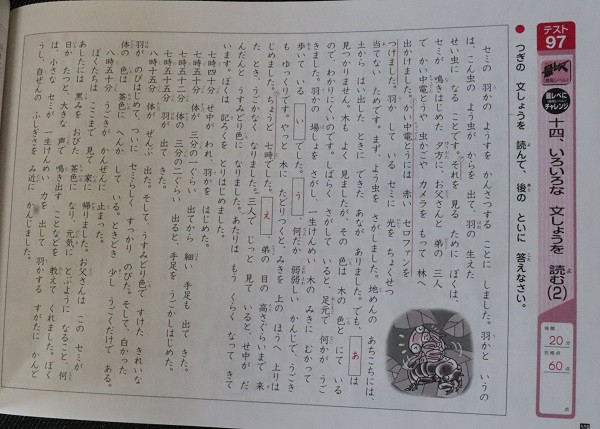 テスト
97
最レベ
最レベに
チャレンジ
十四、いろいろな 文しょうを 読む(2)
時間
20分
合格点
60点
点
● つぎの 文しょうを 読んで、後の といに 答えなさい。
セミの 羽かの ようすを かんさつする ことに しました。羽かと いうの
は、こん虫の よう虫が からを 出て、羽の 生えた
せい虫に なる ことです。それを 見る ために ぼくは、
セミが 鳴きはじめた 夕方に、お父さんと 弟の 三人
で かい中電とうや 虫かごや カメラを もって 林へ
出かけました。かい中電とうには 赤い セロファンを
つけました。羽か している セミに 光を ちょくせつ
当てない ためです。まず、よう虫を さがしました。地めんの あちこちには、
土から はい出した ときに できた あなが ありました。でも、 あ は
見つかりません。木も よく 見ましたが、その 色は 木の 色と にて いる
ので、わかりにくいのです。しばらく さがして いると、足元で 何かが うご
きました。羽かの 場しょを さがし、一生けんめい 木の みきに むかって
歩いて いる い でした。 う 何だか 弱弱しい かんじで、うごき
も ゆっくりです。やっと 木に たどりつくと、みきを 上の ほうへ 上りは
じめました。ちょうど 七時でした。 え 弟の 目の 高さぐらいまで 来
た とき、うごかなく なりました。三人で じっと 見て いると、せ中が だ
んだんと うすみどり色に なりました。あたりは もう くらく なって きて
います。ぼくは 記ろくを とりはじめました。
七時四十分 せ中が われ、羽かを はじめる。
七時五十分 体が 三分の一ぐらい 出てから 細い 手足も 出て きた。
七時五十二分 体の 三分の二ぐらい 出ると、手足を うごかしはじめた。
八時五分 羽が 出て きた。
八時十五分 体が ぜんぶ 出た。そして、うすみどり色で すけた きれいな
羽が のびはじめて、ついに セミらしく すっかり のびた。そして、白かった
体の 色は 茶色に へんか して いる。ときどき 少し うごくだけで ある。
八時五十分 うごきが かんぜんに 止まった。
ぼくたちは ここまで 見て 家に 帰りました。お父さんは この セミが
あしたには 黒みを おびた 茶色に なり、元気に とぶように なること、何
日か たつと、大きな 声で 鳴き出す ことなどを 教えて くれました。ぼく
は、小さな セミが 一生けんめい 力を 出して 羽かする すがたに かんど
うし、自ぜんの ふしぎさを み近に かんじました。